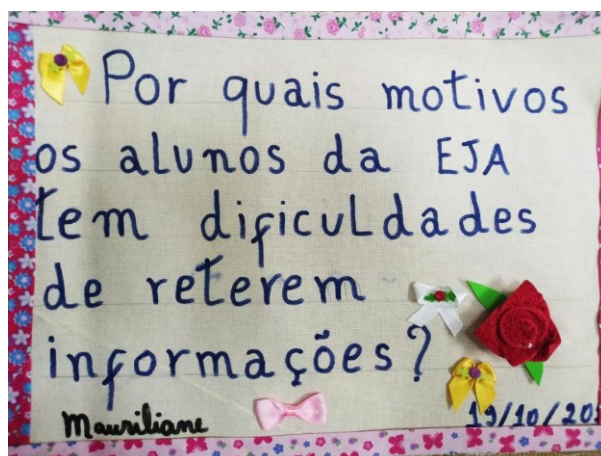 Por quais motivos
os alunos da EJA
tem dificuldades
de reterem
informações?
Mauriliane
19/10/20